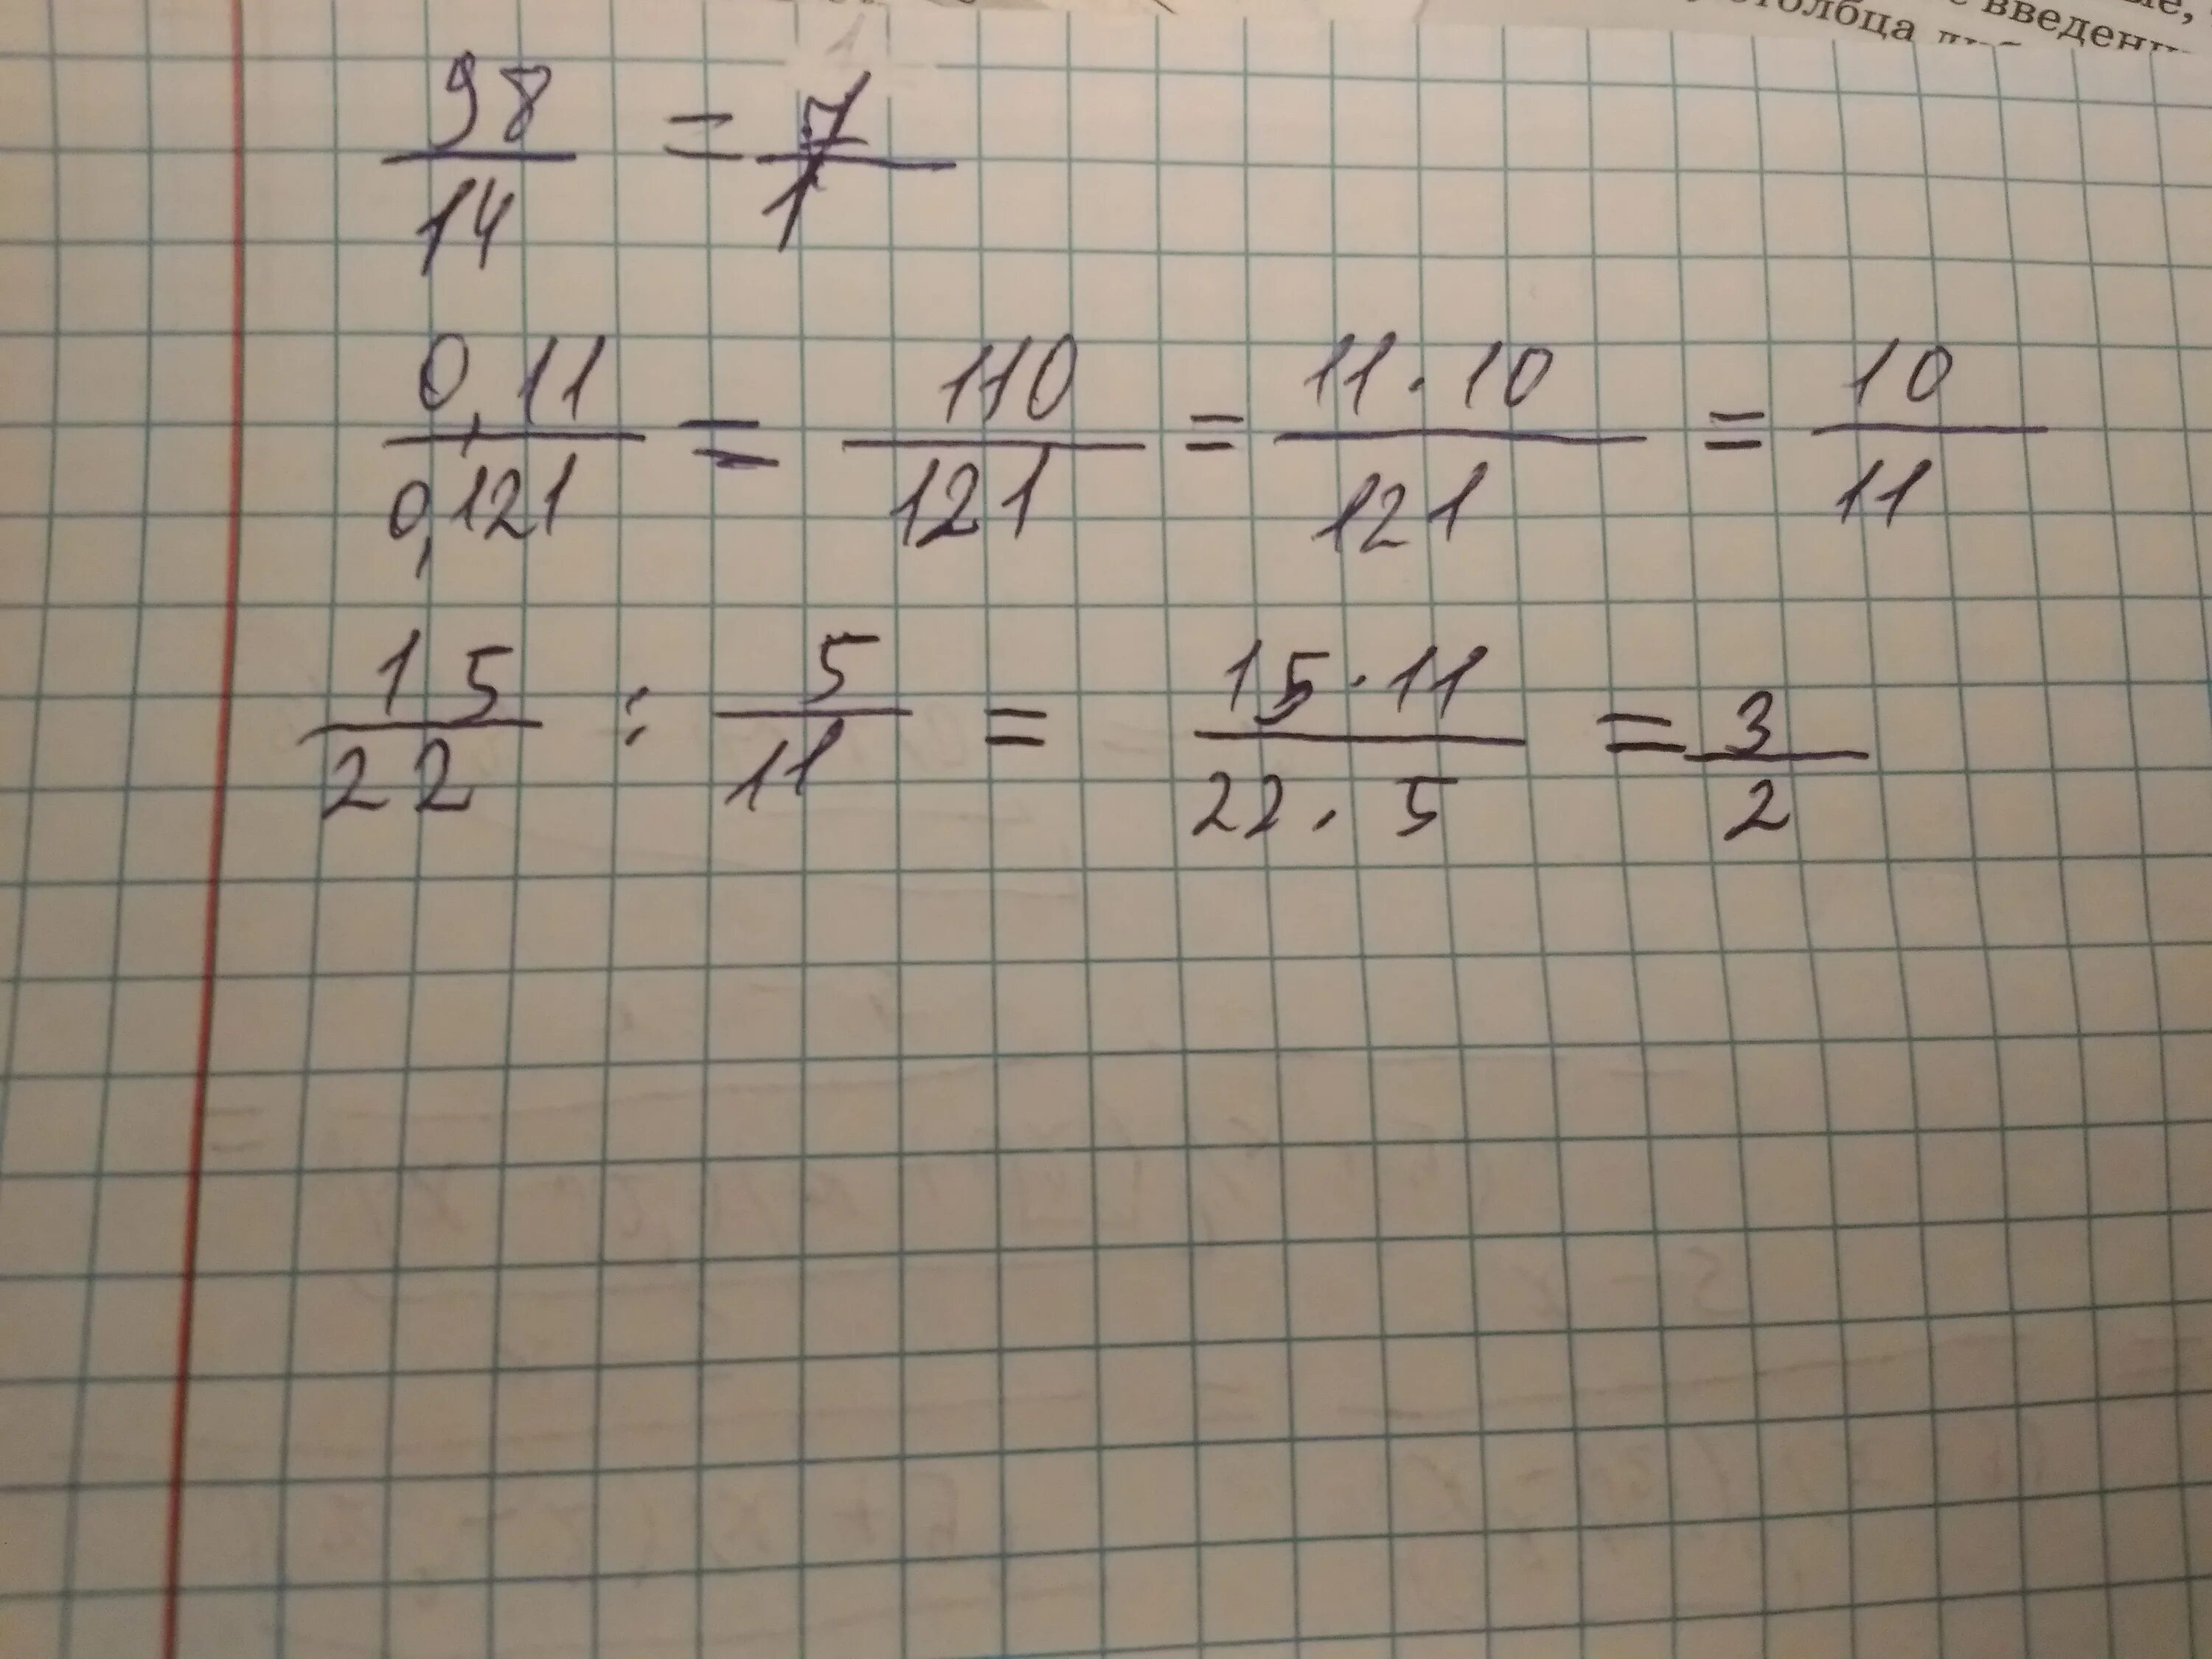 введени
столбца
98/14 = 7/1
0,11/0,121 = 110/121 = 11·10/121 = 10/11
15/22 : 5/11 = 15·11/22·5 = 3/2